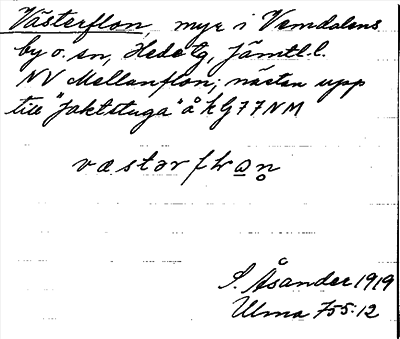 Västerflon, myr i Vemdalens
by o. sn, Hede tg, Jämtl.l.
NV Mellanflon; nästan upp
till "Jaktstuga" å k G77NM
væstərfƚωn̥
S. Åsander 1919
Ulma 755:12